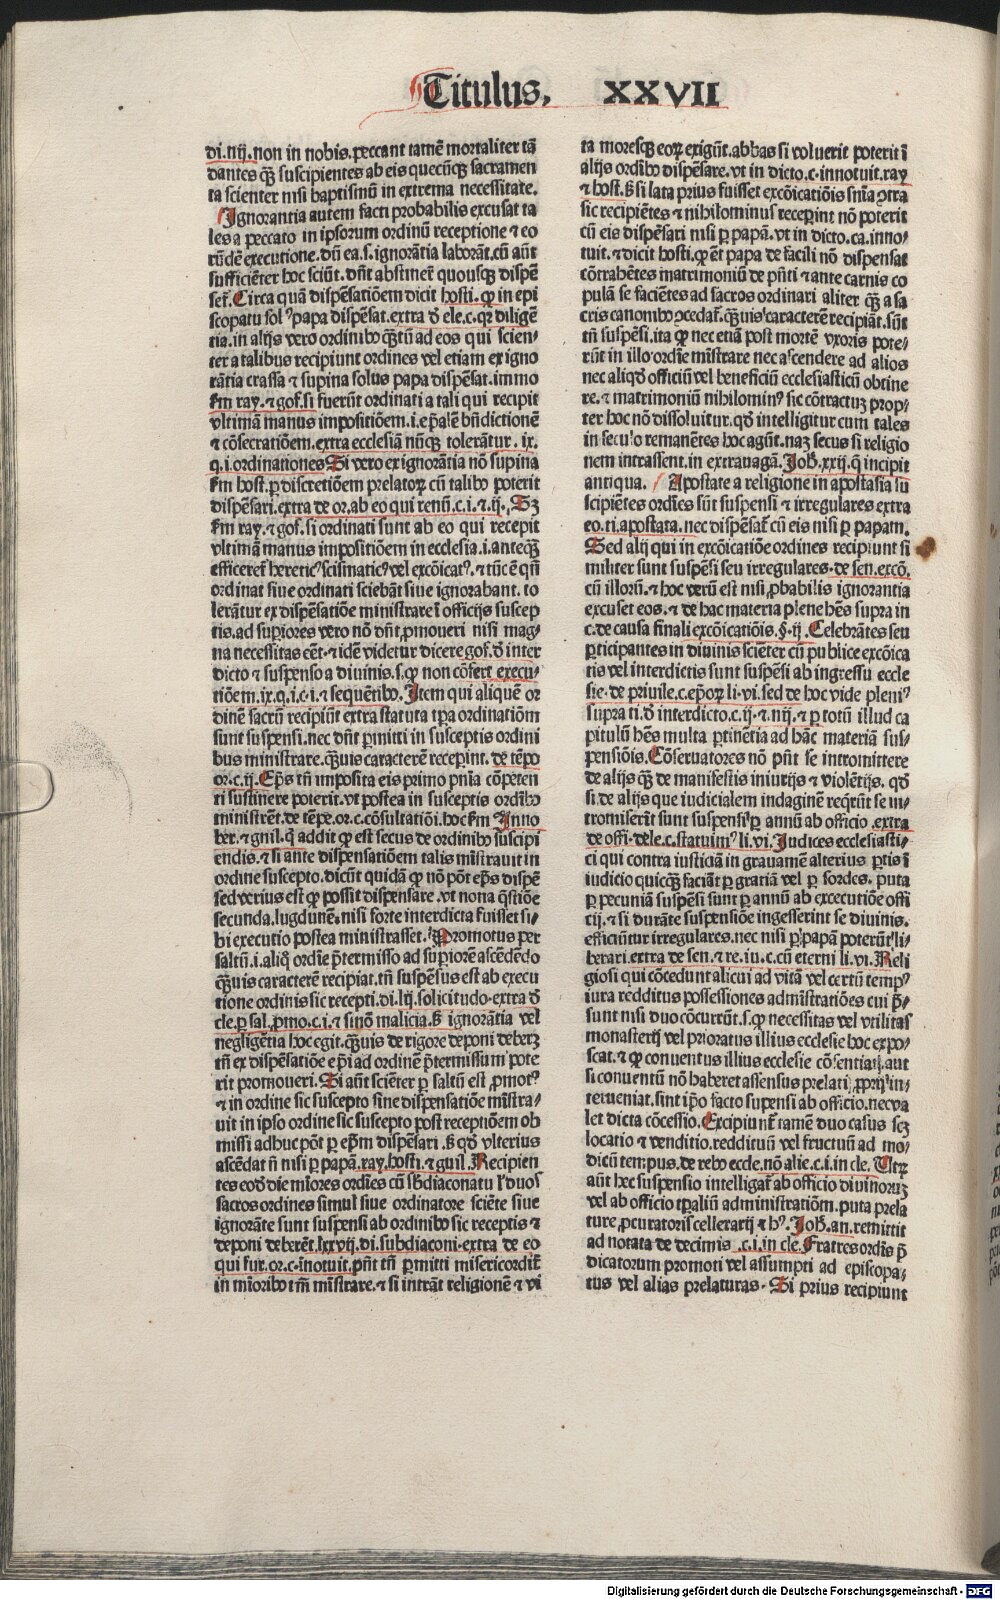 Titulus. XXVII
di. iiij. non in nobis. peccant tamē mortaliter tā
dantes qȝ suscipientes ab eis quecūqȝ sacramen
ta scienter nisi baptismū in extrema necessitate.
Ignorantia autem facti probabilis excusat ta
les a peccato in ipsorum ordinū receptione ⁊ eo
rūdē executione. dū ea. s. ignorātia laborāt. cū aūt
sufficiēter hoc sciūt. dn̄t abstinere quousqȝ dispē
set̄. Circa quā dispēsatiōem dicit hosti. ꝙ in epi
scopatu solꝰ papa dispēsat. extra ď ele. c. qr diligē
tia. in alijs vero ordinibꝰ qȝtū ad eos qui scien-
ter a talibus recipiunt ordines vel etiam ex igno
rātia crassa ⁊ supina solus papa dispēsat. immo
ẜm ray. ⁊ gof. si fuerūt ordinati a tali qui recipit
vltimā manus impositiōem. i. ep̄alē bn̄dictionē
⁊ cōsecratiōem. extra ecclesiā nūqȝ tolerātur. ix.
q. i. ordinationes Si vero ex ignorātia nō supina
ẜm host. ꝑ discretiōem prelatoꝝ cū talibꝰ poterit
dispēsari. extra de or. ab eo qui renū. c. i. ⁊ ij. Sȝ
ẜm ray. ⁊ gof. si ordinati sunt ab eo qui recepit
vltimā manus impositiōem in ecclesia. i. anteqȝ
efficeret̄ hereticꝰ scismaticꝰ vel excōicatꝰ. ⁊ tūc ē qn̄
ordinat siue ordinati sciebāt siue ignorabant. to
lerātur ex dispēsatiōe ministrare ī officijs suscep
tis. ad suꝑiores vero nō dn̄t ꝓmoueri nisi mag-
na necessitas eēt. ⁊ idē videtur dicere gof. ď inter
dicto ⁊ suspenso a diuinis. s. ꝙ non cōfert execu-
tiōem. ix. q. i. c. i. ⁊ sequētibꝰ. Item qui aliquē or
dinē sacrū recipiūt extra statuta tꝑa ordinatiōm
sunt suspensi. nec dn̄t ꝑmitti in susceptis ordini
bus ministrare. qȝuis caracterē receperint. de tēpo
or. c. ij. Ep̄s tn̄ imposita eis primo pn̄ia cōpeten
ti sustinere poterit. vt postea in susceptis ordībꝰ
ministrēt. de tēpe. or. c. cōsultatiōi. hoc ẜm Inno
ber. ⁊ guil. q̄ addit ꝙ est secus de ordinibꝰ suscipi
endis. ⁊ si ante dispensatiōem talis mīstrauit in
ordine suscepto. dicūt quidā ꝙ nō pōt ep̄s dispē
sed verius est ꝙ possit dispensare. vt nona q̄stiōe
secunda. lugdunē. nisi forte interdicta fuisset si-
bi executio postea ministrasset. Promotus per
saltū. i. aliq̊ ordīe p̄termisso ad suꝑiorē ascēdēdo
qȝuis caracterē recipiat. tn̄ suspēsus est ab execu
tione ordinis sic recepti. di. lij. solicitudo. extra ď
cle. ꝑ sal. ꝓmo. c. i. ⁊ si nō malicia. ẜ ignorātia vel
negligētia hoc egit. qȝuis de rigore deponi deberȝ
tn̄ ex dispēsatiōe ep̄i ad ordinē p̄termissum pote
rit promoueri. Si aūt sciēter ꝑ saltū est ꝓmotꝰ
⁊ in ordine sic suscepto sine dispensatiōe mīstra-
uit in ipso ordine sic suscepto post receptiōem ob
missi adhuc pōt ꝑ ep̄m dispēsari. ẜ qď vlterius
ascēdat n̄ nisi ꝑ papā. ray. hosti. ⁊ guil. Recipien
tes eoď die miores ordīes cū sb̄diaconatu ł duos
sacros ordines simul siue ordinatore sciēte siue
ignorāte sunt suspensi ab ordinibꝰ sic receptis ⁊
deponi deberēt. lxxvij. di. subdiaconi. extra de eo
qui fur. or. c. īnotuit. pn̄t tn̄ ꝑmitti misericordit̄
in mīoribꝰ tm̄ mīstrare. ⁊ si intrāt religionē ⁊ vi
ta moresqȝ eoꝝ exigūt. abbas si voluerit poterit ī
alijs ordībꝰ dispēsare. vt in dicto. c. innotuit. ray
⁊ host. ẜ si lata prius fuisset excōicatiōis sn̄ia ꝯtra
sic recipiētes ⁊ nihilominus receperint nō poterit
cū eis dispēsari nisi ꝑ papā. vt in dicto. ca. inno-
tuit. ⁊ dicit hosti. ꝙ et̄ papa de facili nō dispensat
cōtrahētes matrimoniū de pn̄ti ⁊ ante carnis co
pulā se faciētes ad sacros ordinari aliter qȝ a sa
cris canonibꝰ ꝯcedat̄. qȝuis caracterē recipiāt. sūt
tn̄ suspēsi. ita ꝙ nec etiā post mortē vxoris pote-
rūt in illo ordīe mīstrare nec ascendere ad alios
nec aliqď officiū vel beneficiū ecclesiasticū obtine
re. ⁊ matrimoniū nihilominꝰ sic cōtractuȝ prop-
ter hoc nō dissoluitur. qď intelligitur cum tales
in seculo remanētes hoc agūt. naȝ secus si religio
nem intrassent. in extrauagā. Joh̄. xxij. q̄ incipit
antiqua. Apostate a religione in apostasia su
scipiētes ordīes sūt suspensi ⁊ irregulares extra
eo. ti. apostata. nec dispēsat̄ cū eis nisi ꝑ papam.
Sed alij qui in excōicatiōe ordines recipiunt si
militer sunt suspēsi seu irregulares. de sen. excō.
cū illorū. ⁊ hoc verū est nisi ꝓbabilis ignorantia
excuset eos. ⁊ de hac materia plene hēs supra in
c. de causa finali excōicatiōis. §. ij. Celebrātes seu
ꝑticipantes in diuinis sciēter cū publice excōica
tis vel interdictis sunt suspēsi ab ingressu eccle
sie. de priuile. c. ep̄oꝝ li. vi. sed de hoc vide pleniꝰ
supra ti. ď interdicto. c. ij. ⁊. iiij. ⁊ ꝑ totū illud ca
pitulū hēs multa ꝑtinētia ad hāc materiā sus-
pensiōis. Cōseruatores nō pn̄t se intromittere
de alijs qȝ de manifestis iniurijs ⁊ violētijs. qď
si. de alijs que iudicialem indaginē reqrūt se in-
tromiserīt sunt suspensi ꝑ annū ab officio. extra
de offi. dele. c. statuimꝰ li. vi. Judices ecclesiasti-
ci qui contra iusticiā in grauamē alterius ꝑtis ī
iudicio quicqȝ faciāt ꝑ gratiā vel ꝑ sordes. puta
ꝑ pecuniā suspēsi sunt ꝑ annū ab excecutiōe offi
cij. ⁊ si durāte suspensiōe ingesserint se diuinis.
efficiūtur irregulares. nec nisi ꝑ papā poterūt li-
berari. extra de sen. ⁊ re. iu. c. cū eterni li. vi. Reli
giosi qui cōcedunt alicui ad vitā vel certū tempꝰ
iura redditus possessiones admīstratiōes cui p̄-
sunt nisi duo cōcurrūt. s. ꝙ necessitas vel vtilitas
monasterij vel prioratus illius ecclesie hoc expo-
scat. ⁊ ꝙ conuentus illius ecclesie cōsentiat. aut
si conuentū nō haberet assensus prelati ꝓprij in-
terueniat. sint ip̄o facto supensi ab officio. nec va
let dicta cōcessio. Excipiunt̄ tamē duo casus scȝ
locatio ⁊ venditio. reddituū vel fructuū ad mo-
dicū tempus. de rebꝰ eccle. nō alie. c. i. in cle. Vtꝝ
aūt hec suspensio intelligat̄ ab officio diuinoruȝ
vel ab officio tꝑaliū administratiōm. puta prela
ture ꝓcuratoris cellerarij ⁊ hꝰ. Joh̄. an. remittit
ad notata de decimis. c. i. in cle. Fratres ordīs p̄
dicatorum promoti vel assumpti ad episcopa-
tus vel alias prelaturas. Si prius recipiunt
Digitalisierung gefördert durch die Deutsche Forschungsgemeinschaft - DFG